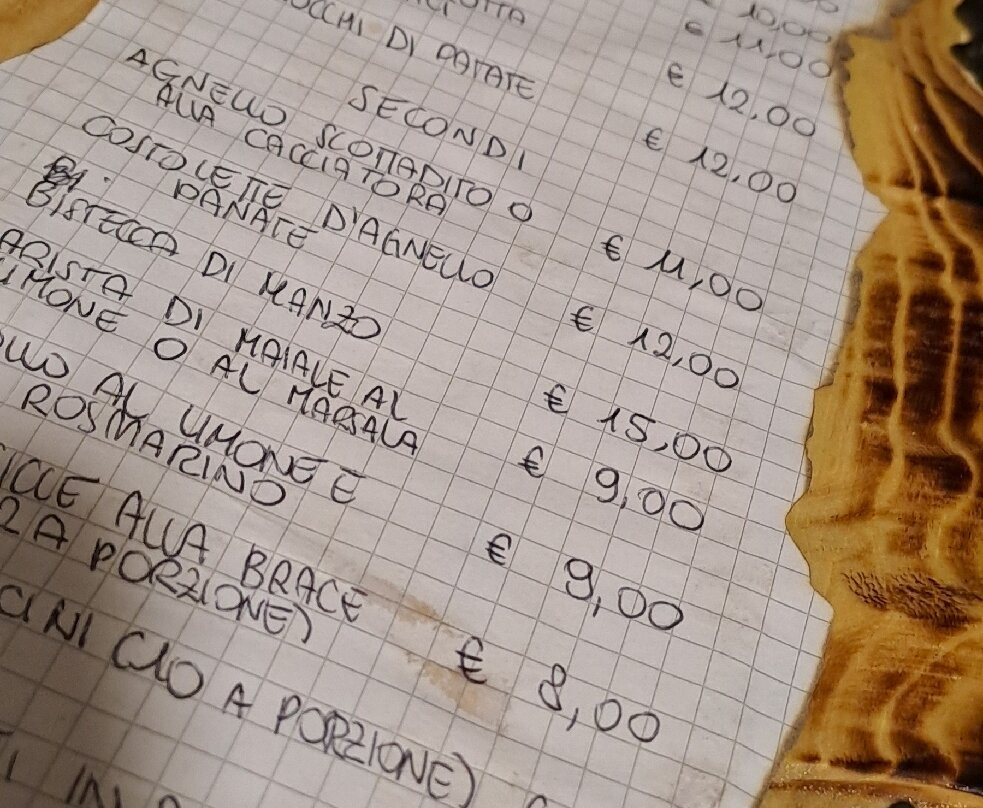 € 10,00
€ 11,00
DI PATATE € 12,00
SECONDI € 12,00
AGNELLO SCOTTADITO O
ALLA CACCIATORA € 11,00
COSTOLETTE D'AGNELLO
PANATE € 12,00
BISTECCA DI MANZO € 15,00
ARISTA DI MAIALE AL
LIMONE O AL MARSALA € 9,00
AL LIMONE E
ROSMARINO € 9,00
ALLA BRACE
A PORZIONE) € 8,00
A PORZIONE)